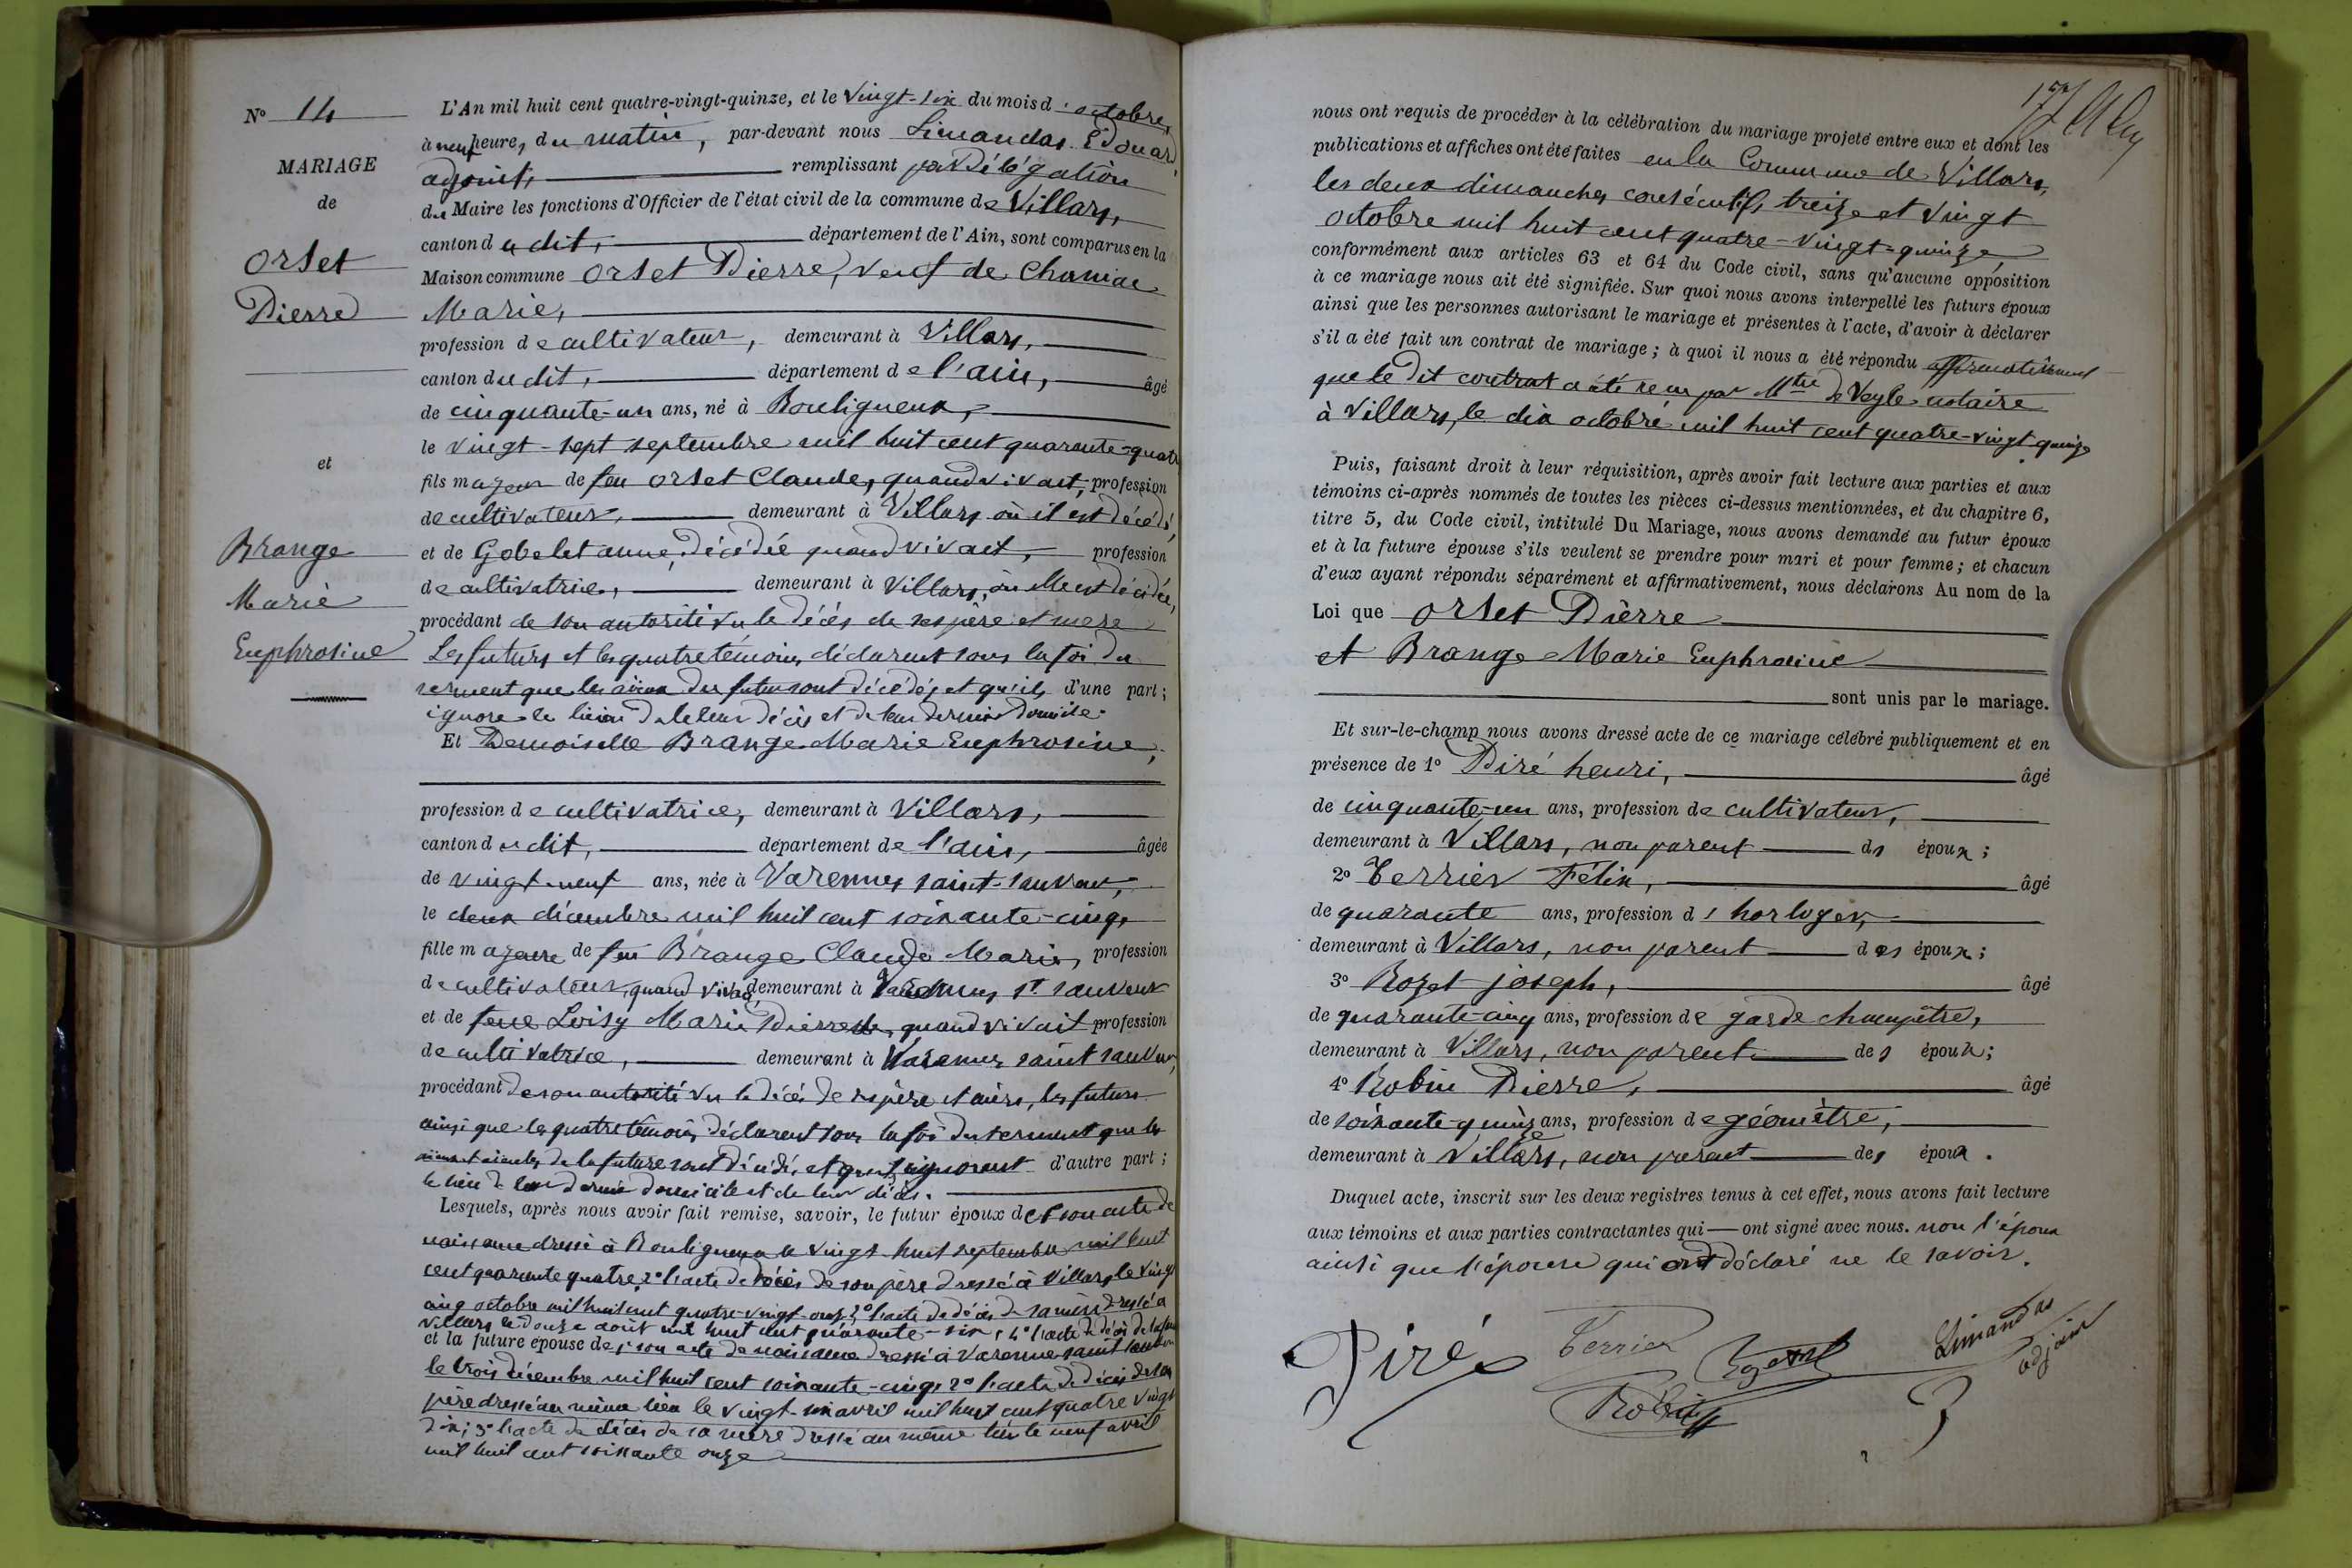 N° 14
MARIAGE
de
Orset
Pierre
et
Brange
Marie
Euphrosine
L'An mil huit cent quatre-vingt-quinze, et le vingt-six du mois d'octobre,
à neuf heures du matin, par-devant nous Limandas Edouard,
adjoint, remplissant par délégation
du Maire les fonctions d'Officier de l'état civil de la commune de Villars,
canton dudit, département de l'Ain, sont comparus en la
Maison commune Orset Pierre, veuf de
Marie,
profession de cultivateur, demeurant à Villars,
canton dudit, département de l'ain, âgé
de cinquante-un ans, né à Bouligneux,
le vingt-sept septembre mil huit cent quarante-quatre
fils majeur de feu Orset Claude, quand vivait, profession
de cultivateur, demeurant à Villars où il est décédé,
et de Gobelet anne, décédée quand vivait, profession
de cultivatrice, demeurant à Villars, où elle est décédée,
procédant de son autorité vu le décès de ses père et mere
Les futurs et les quatre témoins déclarent sous la foi du
serment que les aïeux du futur sont décédés et qu'ils d'une part;
ignore le lieu de leur décès et de leur dernier domicile.
Et Demoiselle Brange Marie Euphrosine,
profession de cultivatrice, demeurant à Villars,
canton dudit, département de l'ain, âgée
de vingt-neuf ans, née à Varennes saint-sauveur,
le deux décembre mil huit cent soixante-cinq,
fille majeure de feu Brange Claude Marie, profession
de cultivateur, quand vivait, demeurant à Varennes st sauveur
et de feue Loisy Marie Pierrette, quand vivait profession
de cultivatrice, demeurant à Varennes saint sauveur,
procédant de son autorité vu le décès de ses père et mère, les futurs
ainsi que les quatre témoins déclarent sous la foi du serment que les
aïeux et aïeules de la future sont décédés et qu'ils ignorent d'autre part;
le lieu de leur dernier domicile et de leur décès.
Lesquels, après nous avoir fait remise, savoir, le futur époux de 1° son acte de
naissance dressé à Bouligneux le vingt-huit septembre mil huit
cent quarante quatre; 2° l'acte de décès de son père dressé à Villars, le vingt
cinq octobre mil huit cent quatre-vingt-onze; 3° l'acte de décès de sa mère dressé à
Villars le douze août mil huit cent quarante-six; 4° l'acte de décès de
et la future épouse de 1° son acte de naissance dressé à Varennes saint sauveur
le trois décembre mil huit cent soixante-cinq; 2° l'acte de décès de son
père dressé au même lieu le vingt-six avril mil huit cent quatre vingt
dix; 3° l'acte de décès de sa mère dressé au même lieu le neuf avril
mil huit cent soixante onze
nous ont requis de procéder à la célébration du mariage projeté entre eux et dont les
publications et affiches ont été faites en la Commune de Villars,
les deux dimanches consécutifs treize et vingt
octobre mil huit cent quatre-vingt-quinze,
conformément aux articles 63 et 64 du Code civil, sans qu'aucune opposition
à ce mariage nous ait été signifiée. Sur quoi nous avons interpellé les futurs époux
ainsi que les personnes autorisant le mariage et présentes à l'acte, d'avoir à déclarer
s'il a été fait un contrat de mariage; à quoi il nous a été répondu affirmativement
que le dit contrat a été recu par Mtre de Veyle notaire
à Villars, le dix octobre mil huit cent quatre-vingt quinze
Puis, faisant droit à leur réquisition, après avoir fait lecture aux parties et aux
témoins ci-après nommés de toutes les pièces ci-dessus mentionnées, et du chapitre 6,
titre 5, du Code civil, intitulé Du Mariage, nous avons demandé au futur époux
et à la future épouse s'ils veulent se prendre pour mari et pour femme; et chacun
d'eux ayant répondu séparément et affirmativement, nous déclarons Au nom de la
Loi que Orset Pierre
et Brange Marie Euphrosine
sont unis par le mariage.
Et sur-le-champ nous avons dressé acte de ce mariage célébré publiquement et en
présence de 1° Piré henri, âgé
de cinquante-un ans, profession de cultivateur,
demeurant à Villars, non parent ds époux;
2° Terrier Félix, âgé
de quarante ans, profession d'horloger,
demeurant à Villars, non parent des époux;
3° Rozet joseph, âgé
de quarante-cinq ans, profession de garde champêtre,
demeurant à Villars, non parent des époux;
4° Robin Pierre, âgé
de soixante-quinze ans, profession de géomètre,
demeurant à Villars, non parent des époux.
Duquel acte, inscrit sur les deux registres tenus à cet effet, nous avons fait lecture
aux témoins et aux parties contractantes qui ont signé avec nous. non l'époux
ainsi que l'épouse qui ont déclaré ne le savoir.
Piré Terrier Rozet Limandas
adjoint
Robin